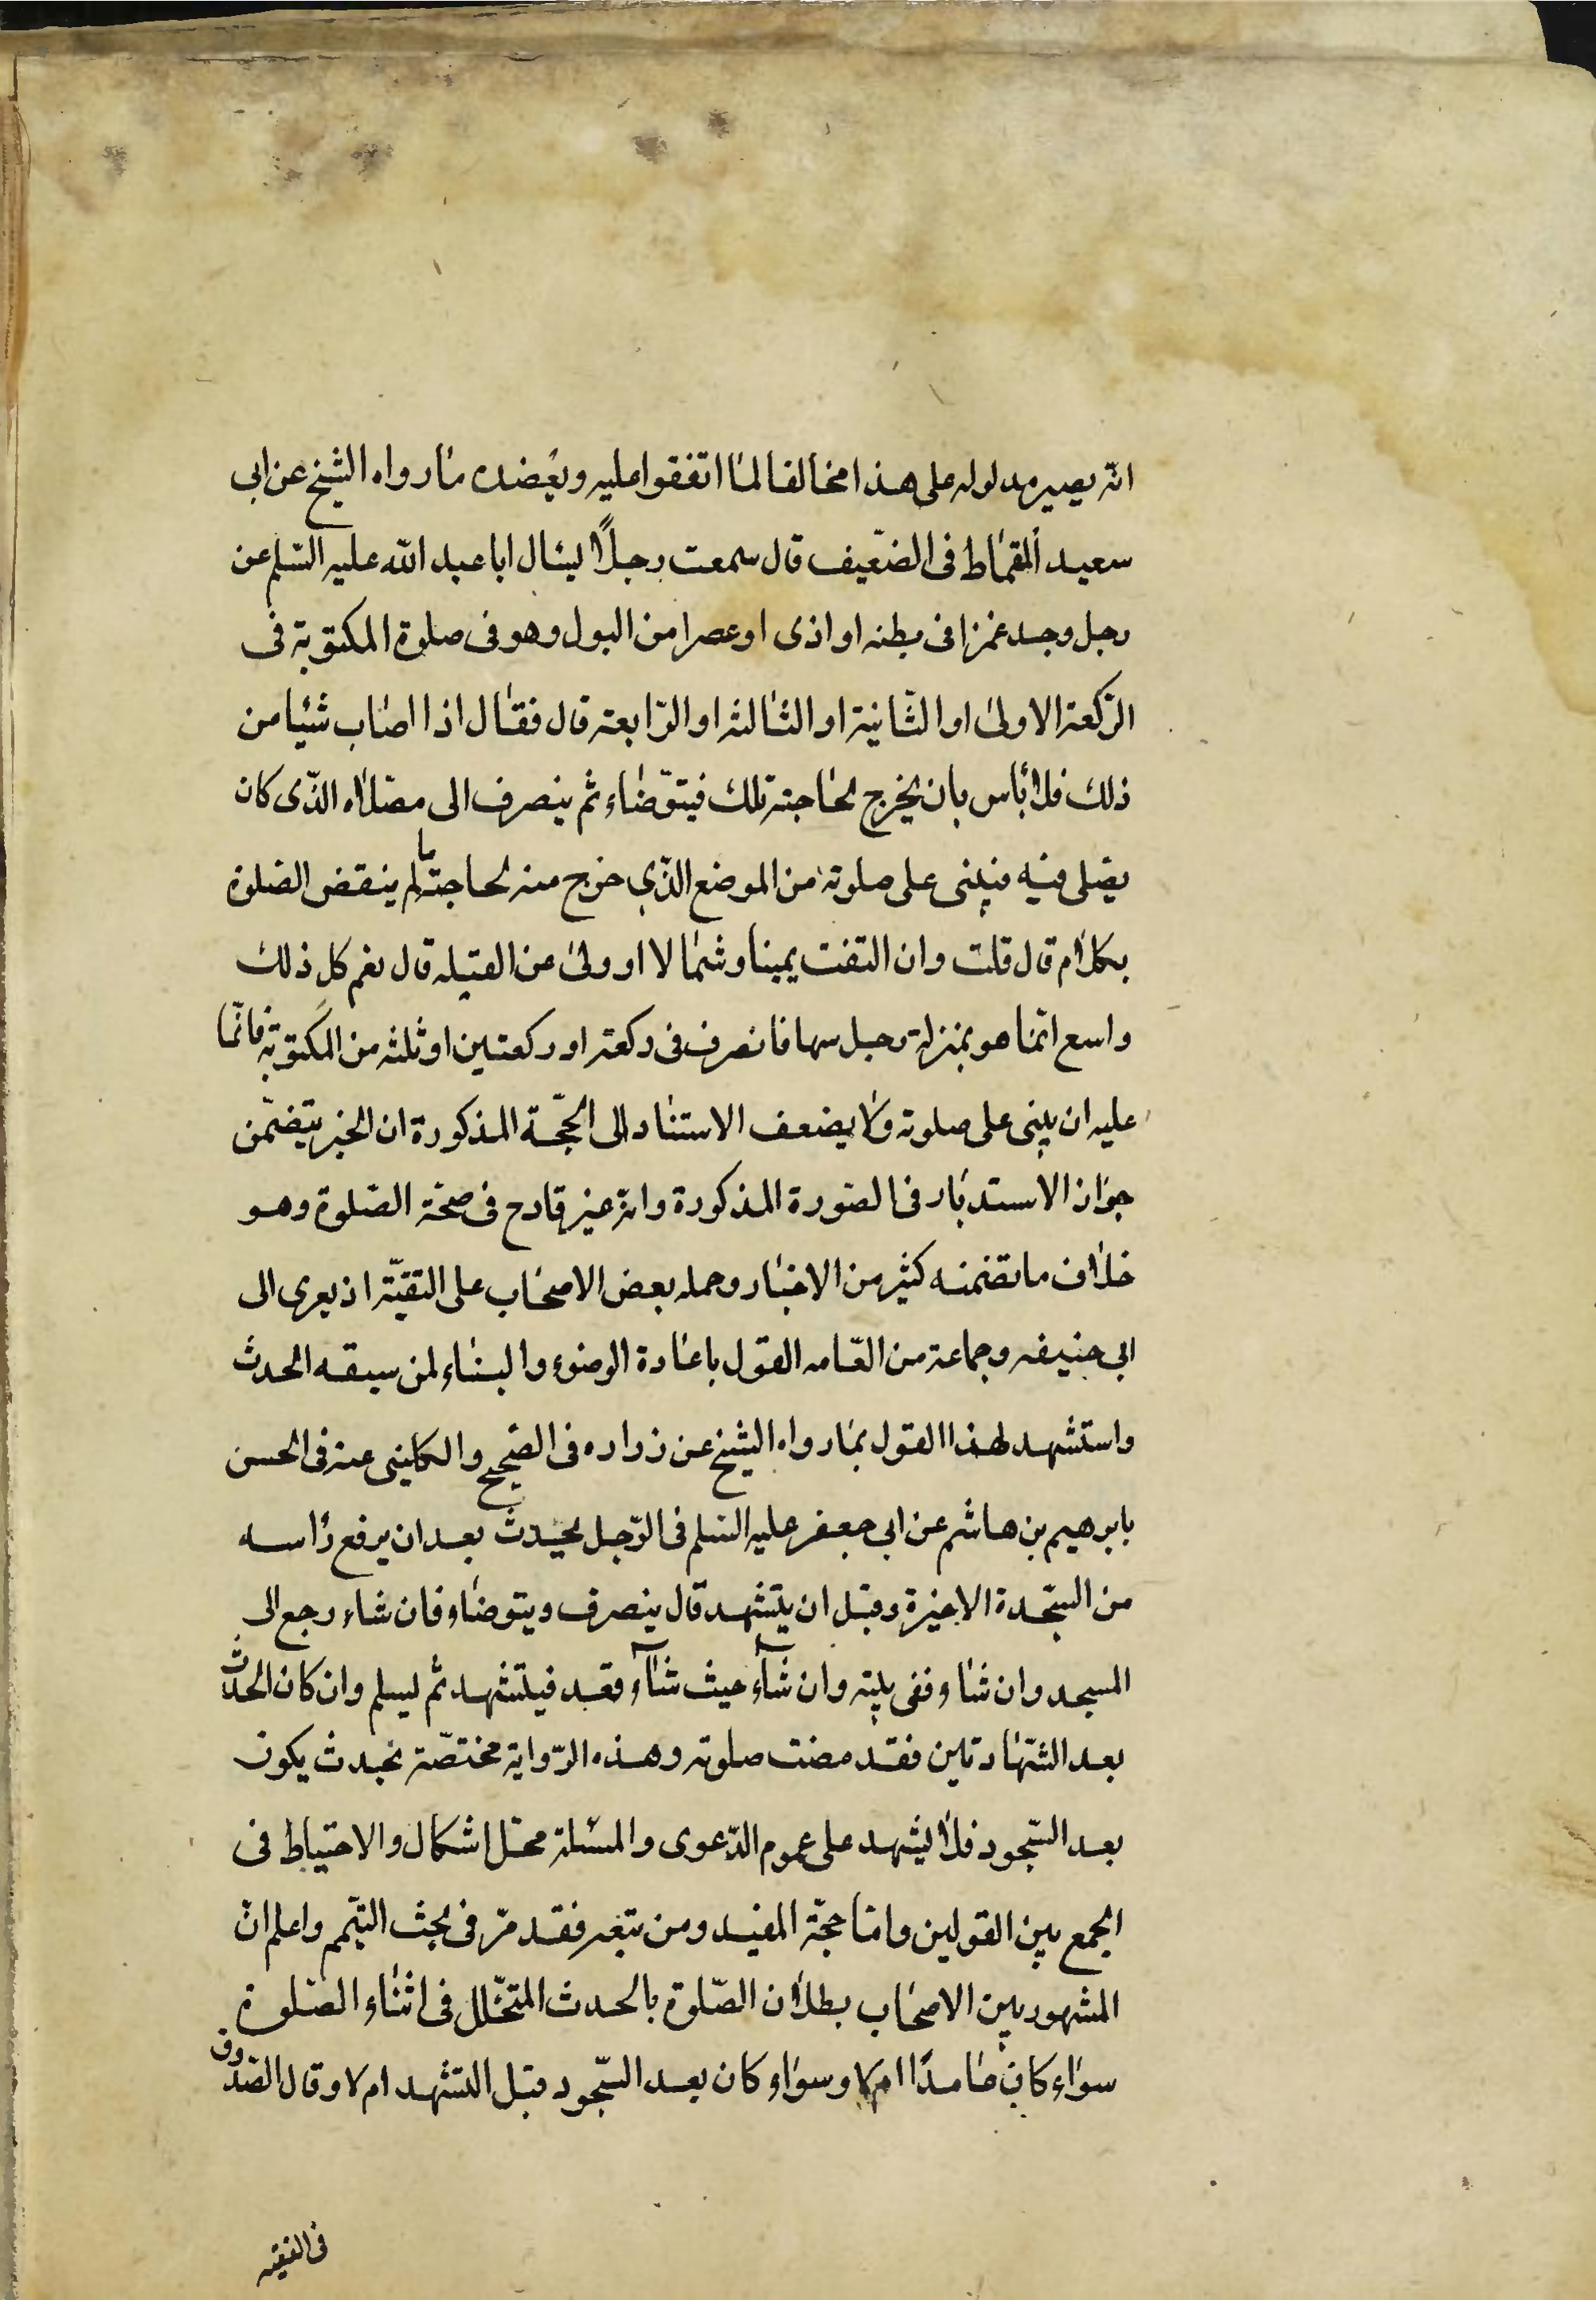 انّه يصير مدلوله على هذا مخالفا لما اتفقوا عليه ويعضده ما رواه الشيخ عن ابى
سعيد القماط فى الضّعيف قال سمعت رجلًا يسئال ابا عبد الله عليه السّلم عن
رجل وجد غمزا فى بطنه او اذى او عصرا من البول وهو فى صلوة المكتوبة فى
الرّكعة الاولى او الثّانية او الثالثه او الرّابعة قال فقال اذا اصاب شيئا من
ذلك فلا بأس بان يخرج لحاجته تلك فيتوّضاء ثم ينصرف الى مصّلاه الذّى كان
يصّلى فيه فيبنى على صلوته من الموضع الذّى خرج منه لحاجته ما لم ينقض الصّلوة
بكلام قال قلت وان التفت يمينا وشمالا او ولى عن القبله قال نعم كل ذلك
واسع انّما هو بمنزلة رجل سها فانصرف فى ركعة او ركعتين او ثلثه من المكتوبة فانّما
عليه ان يبنى على صلوته ولا يضعف الاستناد الى الحجّة المذكورة ان الخبر يتضمّن
جواز الاستدبار فى الصّورة المذكورة وانّه غير قادح فى صحّة الصّلوة وهو
خلاف ما تضمنه كثير من الاخبار وحمله بعض الاصحاب على التقيّة اذ يعرى الى
ابى حنيفه وجماعة من العّامه القول باعادة الوضوء والبناء لمن سبقه الحدث
واستشهد لهذا القول بما رواه الشيخ عن زراره فى الصّحيح والكلينى عنه فى الحسن
بابرهيم بن هاشم عن ابى جعفر عليه السّلم فى الرّجل يحدث بعد ان يرفع رأسه
من السّجدة الاخيرة وقبل ان يتشهد قال ينصرف ويتوضاء فان شاء رجع الى
المسجد وان شاء ففى بيته وان شآء حيث شآء وقعد فيتشهد ثم يسلم وان كان الحدث
بعد الشّهادتين فقد مضت صلوته وهذه الرّواية مختصّة بحدث يكون
بعد السّجود فلا يشهد على عموم الدّعوى والمسئلة محّل اشكال والاحتياط فى
الجمع بين القولين وامّا حجّة المفيد ومن تبعه فقد مرّ فى بحث التيّمم واعلم انّ
المشهور بين الاصحاب بطلان الصّلوة بالحدث المتخّلل فى اثناء الصّلوة
سواء كان عامدًا ام لا وسواء كان بعد السّجود قبل التشهد ام لا وقال الصّدوق
فى الفقيه